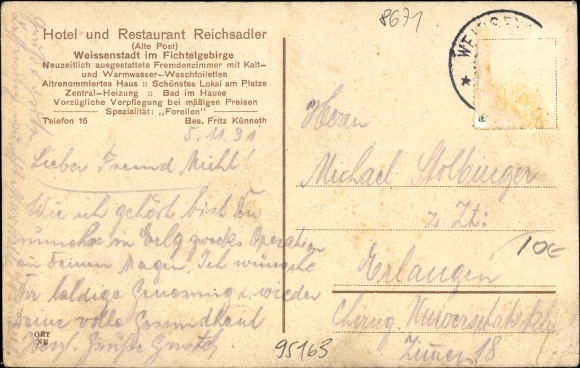 Hotel und Restaurant Reichsadler
(Alte Post)
Weissenstadt im Fichtelgebirge
Neuzeitlich ausgestattete Fremdenzimmer mit Kalt-
und Warmwasser-Waschtoiletten
Altrenommiertes Haus :: Schönstes Lokal am Platze
Zentral-Heizung :: Bad im Hause
Vorzügliche Verpflegung bei mäßigen Preisen
Spezialität: „Forellen"
Telefon 16 Bes. Fritz Künneth
5. 11. 31
Lieber Freund Michl!
Wie ich gehört bist Du
in Erlg zwecks Operation
an Deinen Magen. Ich wünsche
Dir baldige Genesung u. wieder
Deine volle Gesundheit
Grüße
ORT
NE
8671
WEISSEN
Herrn
Michael
z Zt:
Erlangen
Chirug Universitäts
Zimmer 18
10€
95163